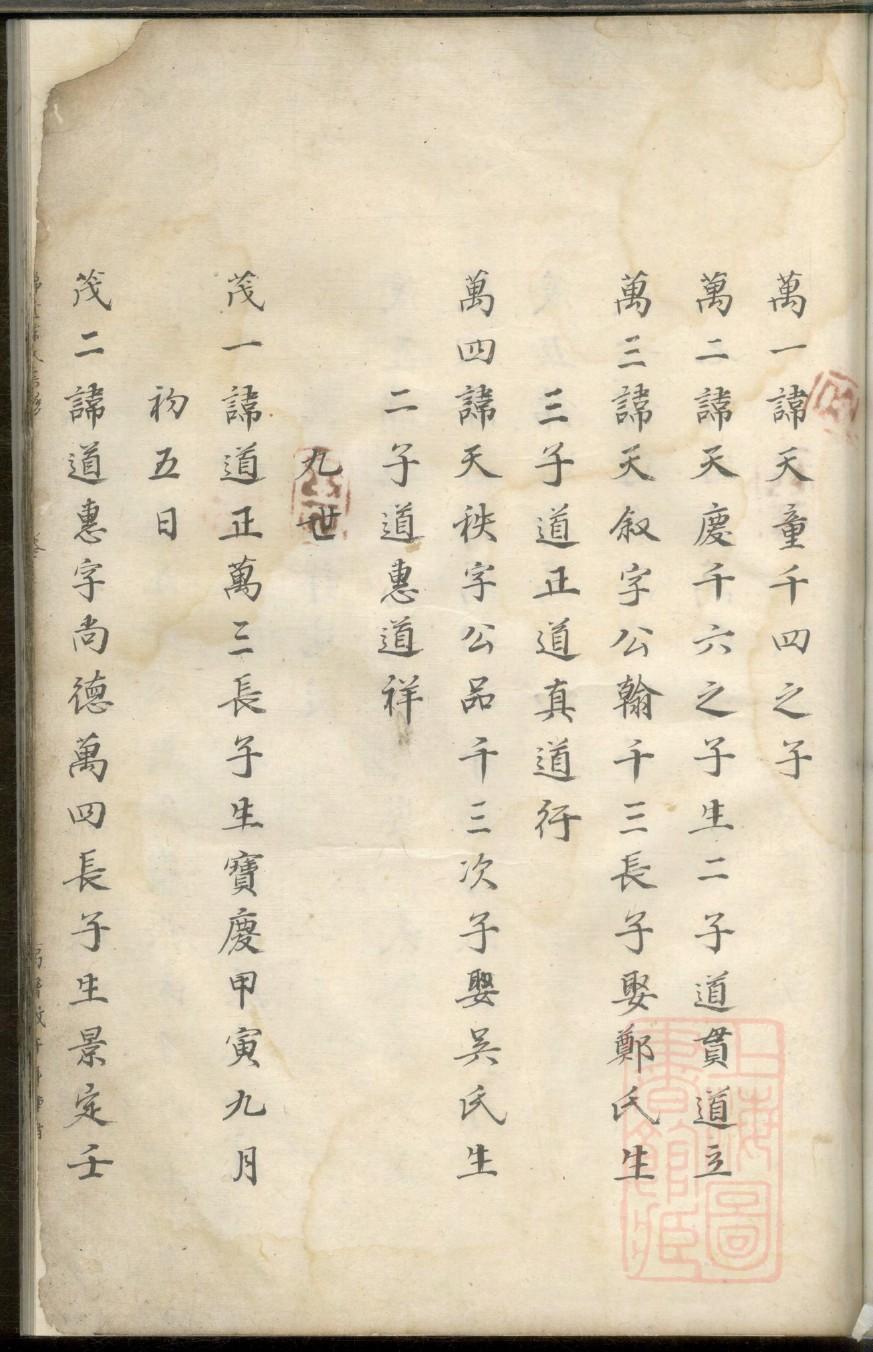 萬一諱天童千四之子
萬二諱天慶千六之子生二子道貫道立
萬三諱天叙字公翰千三長子娶鄭氏生
三子道正道真道行
萬四諱天秩字公品千三次子娶吳氏生
二子道惠道祥
九世
茂一諱道正萬三長子生寶慶甲寅九月
初五日
茂二諱道惠字尚德萬四長子生景定壬
上海圖書館藏